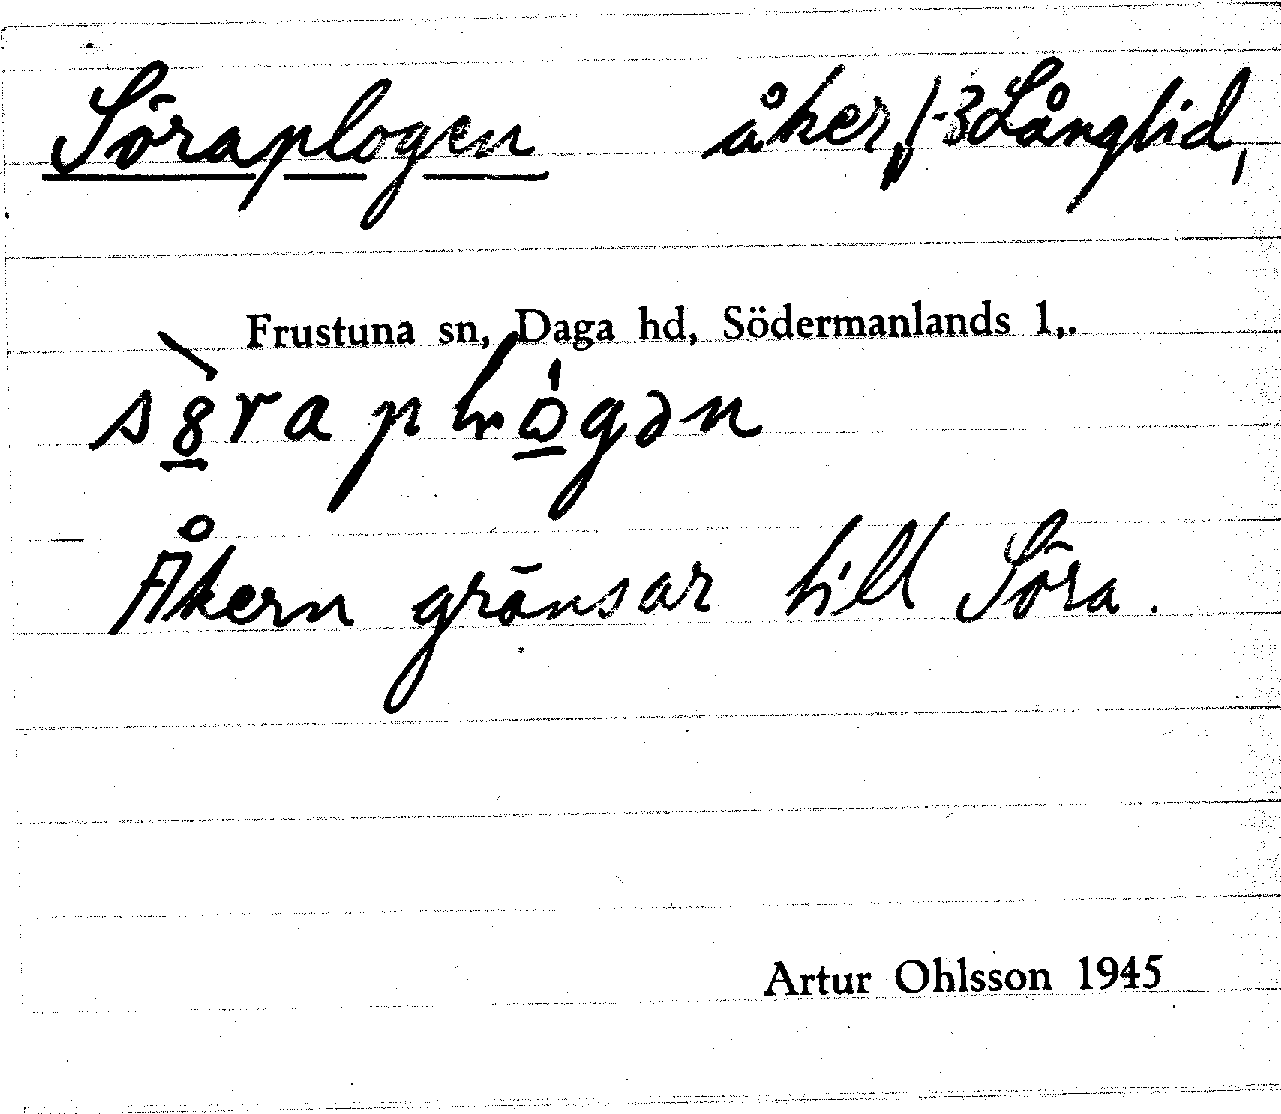 Söraplogen åker, 1-3 Långlid,
Frustuna sn, Daga hd, Södermanlands l,.
Åkern gränsar till Söra.
Artur Ohlsson 1945